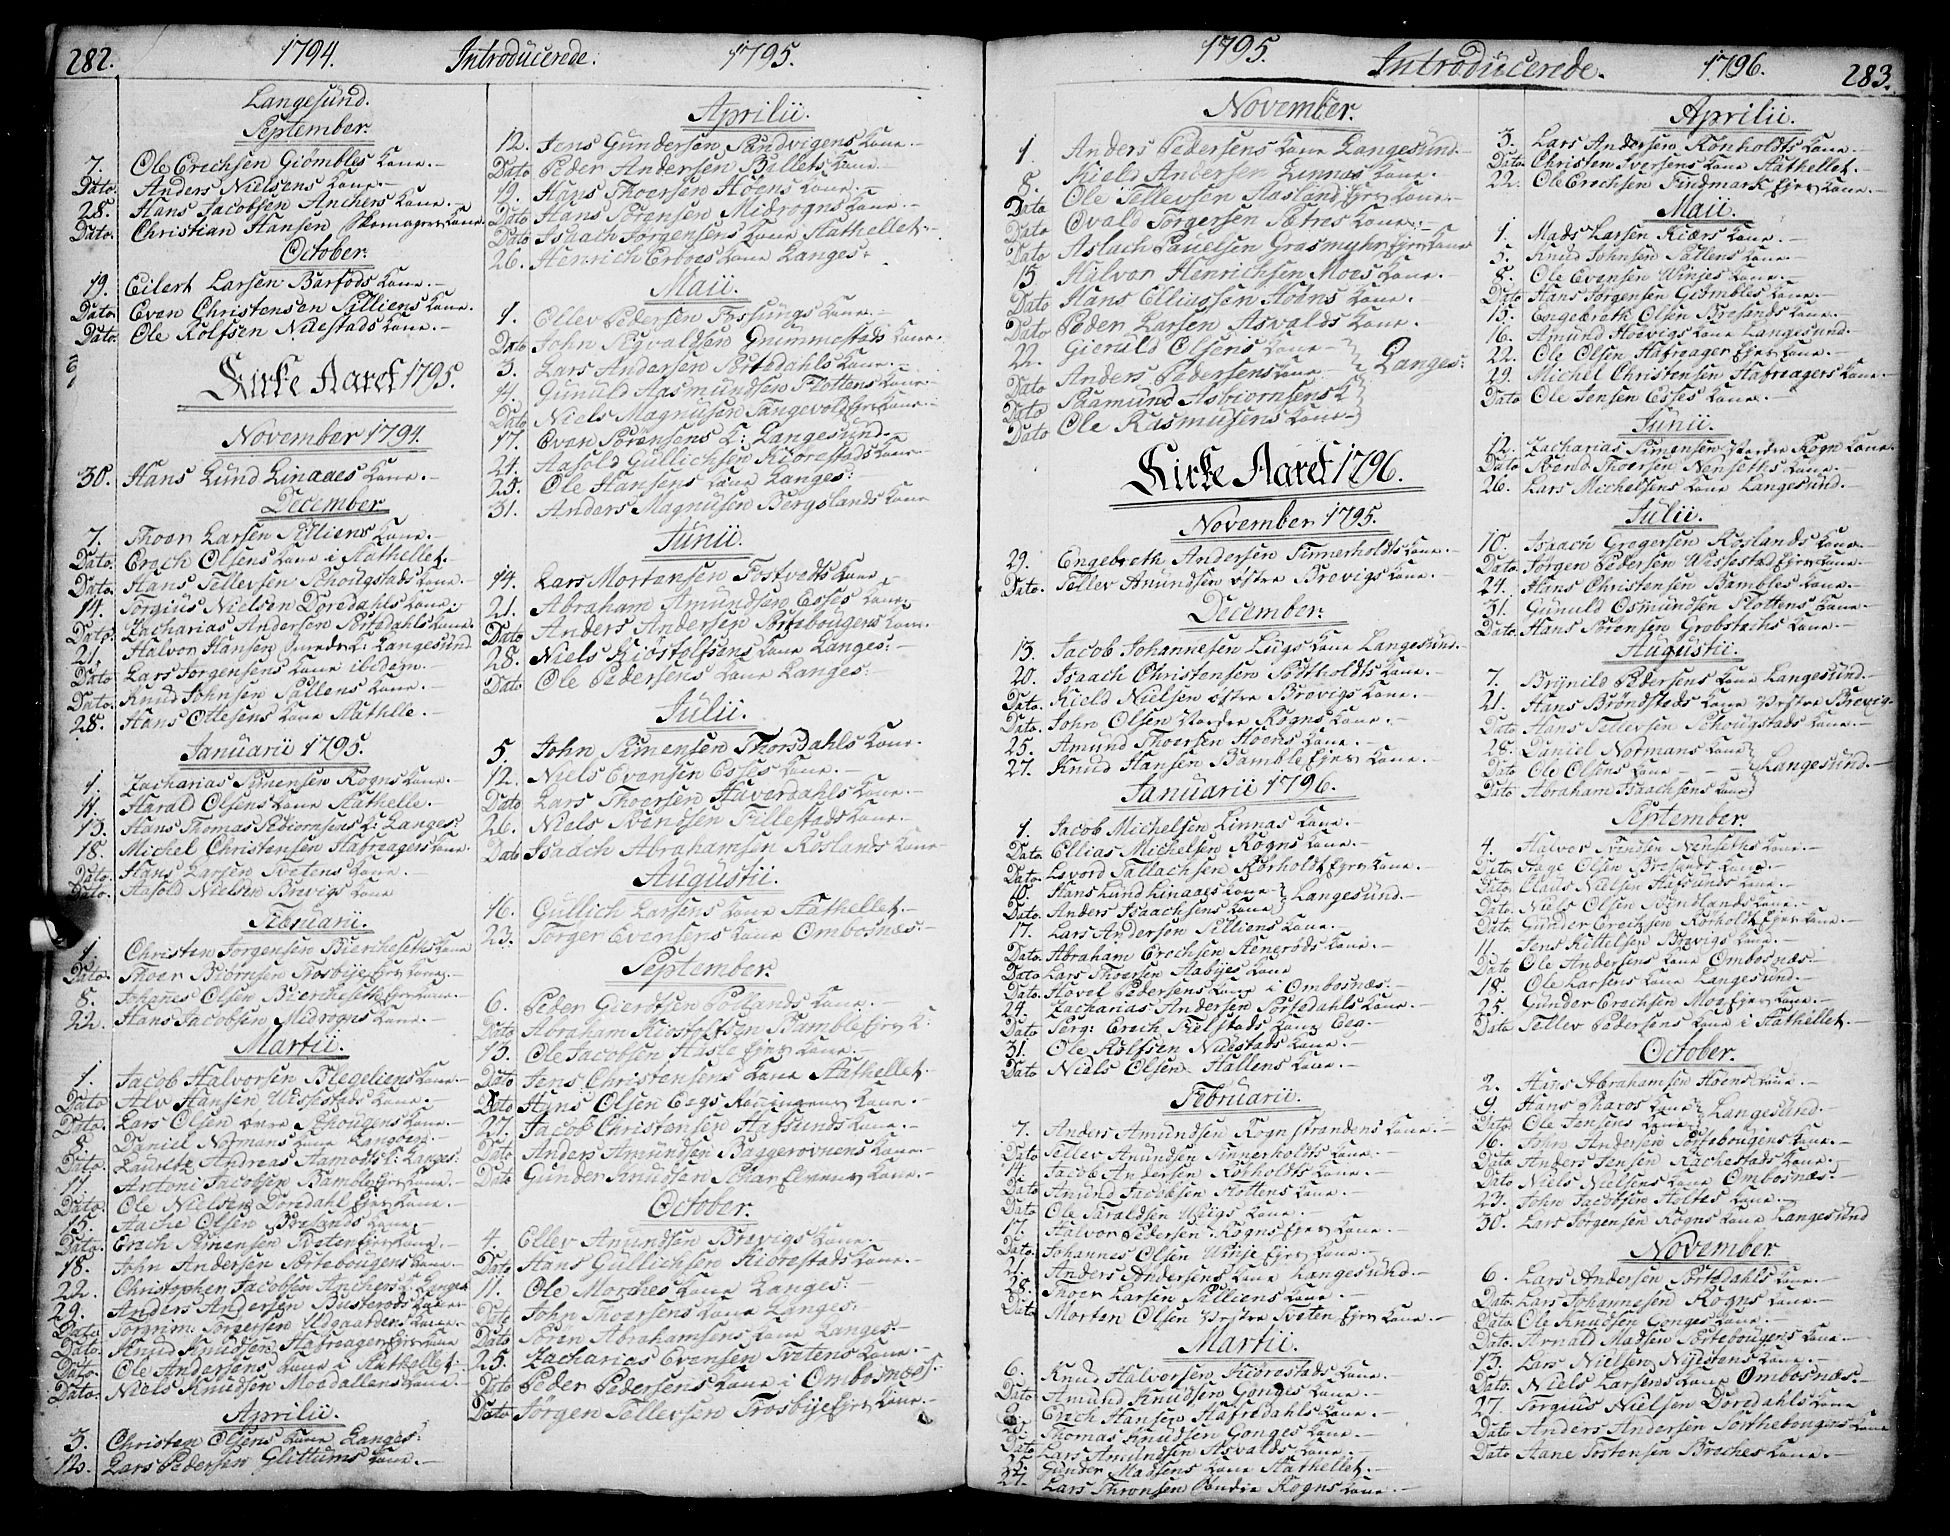 282. 1794. Introducerede. 1795.
Langesund.
September.
7. Ole Erechsen Giömbles Kone.
Dato. Anders Nielsens Kone.
28. Hans Jacobsen Anchers Kone.
Dato. Christian Hansen Skomagers Kone
October.
19. Eilert Larsen Barfods Kone.
Dato. Even Christensen Silliens Kone.
Dato. Ole Rolfsen Nilestads Kone.
Kirke Aaret 1795.
November 1794.
30. Hans Lund Linaaes Kone.
December
7. Thoer Larsen Silliens Kone.
Dato. Erech Olsens Kone i Aathellet.
Dato. Hans Tellevsen Schougstads Kone.
14. Torgius Nielsen Doredahls Kone.
Dato. Zacharias Andersen Sortedahls Kone
21. Halvor Hansen Smeds K: Langesund
Dato Lars Jorgensens Kone ibidem.
Dato. Knud Johnsen Sallens Kone.
28. Hans Ottesens Kone Aathelle.
Januarii 1795.
1. Zacharias Simensen Rogns Kone.
11. Harald Olsens Kone Aathelle.
13. Hans Thomas Sebiornsens K: Langes:
18. Michel Christensen Hafreagers Kone
Dato. Hans Larsen Tvetens Kone.
Dato. Aasold Nielsen Brevigs Kone
Februarii.
1. Christen Jorgensen Biercheseths Kone
Dato. Thoer Biörnsen Trosbye Ejers Kone.
8. Johannes Olsen Biercheseth Ejers Kone.
22. Hans Jacobsen Midrogns Kone.
Martii.
1. Jacob Halvorsen Blegeliens Kone.
Dato Alv Hansen Wissestads Kone.
Dato. Lars Olsen övre Schougens Kone.
8 Daniel Normans Kone Langöen.
Dato. Lauretz Andreas Aamodts K: Langes:
11. Antoni Jacobsen Bamble Ejers Kone.
Dato. Ole Nielsen Doredahl Ejers Kone.
15. Aache Olsen Bresands Kone.
Dato. Erech Simensen Tveten Ejers Kone.
18. John Andersen Sortebougens Kone.
22. Christopher Jacobsen Anchers K: Langes
29. Anders Andersen Busterods Kone
Dato Torgrim Torgersen Udgaardens Kone.
Dato. Knud Knudsen Hafreager Ejers Kone
Dato. Ole Andersens Kone i Aathellet.
Dato. Niels Knudsen Moedallens Kone.
Aprilii.
3. Christen Olsens Kone Langes:
12. Lars Pedersen Glittums Kone.
Aprilii.
12. Jens Gundersen Sundvigens Kone.
Dato Peder Andersen Ballets Kone.
19. Hans Thoersen Hoens Kone.
Dato Hans Sörensen Midrogns Kone.
Dato Isaach Jorgensens Kone Aathellet.
26. Henrich Erboes Kone Langes:
Maii.
1. Ellev Pedersen Fossings Kone.
Dato John Sigvaldsen Grummestads Kone.
3. Lars Andersen Sortedahls Kone.
4. Gunuld Aasmundsen Flottens Kone.
Dato Niels Magnusen Tangevold Ejers Kone.
17. Even Sörensens K: Langesund.
24. Aasold Gullichsen Kiorestads Kone
25. Ole Hansens Kone Langes:
31. Anders Magnusen Bergslands Kone
Junii.
14. Lars Mortensen Fostvedts Kone
21. Abraham Amundsen Esses Kone.
Dato Anders Andersen Sortebougens Kone.
28. Niels Kiostolfsens Kone Langes:
Dato Ole Pedersens Kone Langes:
Julii.
5. John Simensen Thorsdahls Kone.
12. Niels Evensen Esses Kone.
Dato Lars Thoersen Haverdahls Kone.
26. Niels Svendsen Tillestads Kone.
Dato Isaach Abrahamsen Röslands Kone
Augustii.
16. Gullich Larsens Kone Aathellet.
23. Torger Evensens Kone Ombosnes:
September.
6. Peder Gierdsen Röslands Kone.
Dato Abraham Kiostolfsen Bamble Ejers K:
13. Ole Jacobsen Hasle Ejers Kone.
Dato Jens Christensens Kone Aathellet.
Dato Hans Olsen Eegs Kone.
27. Jacob Christensen Hafsunds Kone.
Dato Anders Amundsen Baggerovnens Kone
Dato Gunder Knudsen Kone.
October.
4. Ellev Amundsen Brevigs Kone.
Dato Hans Gullichsen Kiorestads Kone.
11. Ole Morches Kone Langes:
Dato John Thoersens Kone Langes:
Dato Sören Abrahamsens Kone Langes
25. Zacharias Evensen Tvetens Kone.
Dato Peder Pedersens Kone i Ombosnæs.
Dato Jorgen Tellevsen Trosbye Ejers Kone.
1795. Introducerede. 1796. 283.
November.
1. Anders Pedersens Kone Langesund
8. Kield Andersen Linnes Kone.
Dato Ole Tellevsen Aasland Ejers Kone.
Dato Ovald Torgersen Sætres Kone.
Dato Aslach Pauelsen Grasmyhr Ejers Kone
15 Halvor Henrichsen Moes Kone.
Dato Hans Elliassen Hoens Kone.
Dato Peder Larsen Asvalds Kone.
22. Gieruld Olsens Kone
Dato Anders Pedersens Kone Langes:
Dato Aamund Asbiornsens K
Dato Ole Rasmusens Kone
Kirke Aaret 1796.
November 1795.
29. Engebreth Andersen Tinnerholdts Kone.
Dato. Tellev Amundsen östre Brevigs Kone.
December.
13. Jacob Johannesen Lugs Kone Langesund.
20. Isaach Christensen Rodtholdts Kone.
Dato. Kield Nielsen östre Brevigs Kone.
Dato. John Olsen Nordre Rogns Kone.
25. Amund Thoersen Hoens Kone.
27. Knud Hansen Bamble Ejers Kone.
Januarii 1796.
1. Jacob Michelsen Linnes Kone.
Dato. Ellias Michelsen Rogns Kone.
Dato. Lavord Tallachsen Rörholt Ejers Kone.
10. Hans Lund Linaaes Kone Langesund.
Dato. Anders Isaachsens Kone
17. Lars Andersen Silliens Kone.
Dato. Abraham Erechsen Aenerods Kone.
Dato Lars Thoersen Aabyes Kone
Dato. Hovel Pedersens Kone i Ombosnæs.
24. Zacharias Andersen Sortedahls Kone.
Dato Serg: Erech Kielstads Kone Eeg.
31. Ole Rolfsen Nilestads Kone.
Dato Niels Olsen Hallens Kone.
Februarii.
7. Anders Amundsen Rognstrandens Kone.
Dato Tellev Amundsen Tinnerholdts Kone.
14. Jacob Andersen Rorholdts Kone.
Dato Amund Jacobsen Flottens Kone.
Dato Ole Taraldsen Wiigs Kone.
17. Halvor Pedersen Rogns Ejers Kone.
Dato. Johannes Olsen Winje Ejers Kone.
21. Anders Andersens Kone Langesund.
28. Thoer Larsen Silliens Kone.
Dato Morten Olsen Vestre Tveten Ejers Kone.
Martii.
6. Knud Halvorsen Kiorestads Kone.
Dato. Amund Knudsen Gonges Kone.
Erech Hansen Hafredahls Kone.
Thomas Knudsen Gonges Kone.
Dato Lars Amundsen Asvalds Kone.
Gunder Madsens Kone Aathellet.
27. Lars Thronsen Søndre Rogns Kone.
Aprilii.
3. Lars Andersen Rönholdts Kone.
Dato. Christen Iversens Kone Aathellet.
22. Ole Erechsen Findmark Ejers Kone.
Maii.
1. Mads Larsen Kiærs Kone.
5. Knud Johnsen Sallens Kone.
8. Ole Evensen Winjes Kone.
Dato Hans Jorgensen Giömbles Kone.
15. Engebreth Olsen Bresands Kone.
16. Amund Hovigs Kone Langesund.
22. Ole Olsen Hafreager Ejers Kone.
29. Michel Christensen Hafreagers Kone.
Dato Ole Jensen Esses Kone.
Junii.
12. Zacharias Simensen Nordre Rogn Kone.
Dato Svend Thorsen Nenseths Kone.
26. Lars Michelsens Kone Langesund.
Julii.
10. Isaach Gregersen Röslands Kone
Dato. Jorgen Pedersen Wissestad Ejers Kone
24. Hans Christensen Bambles Kone.
31. Gunuld Osmundsen Flottens Kone.
Dato. Hans Sörensen Grobstochs Kone.
Augustii.
7. Brynild Pedersens Kone Langesund.
21. Hans Bröndsteds Kone Vestre Brevig.
Dato Hans Tellevsen Schougstads Kone.
28. Daniel Normans Kone
Dato Ole Olsens Kone Langesund.
Dato Abraham Isaachsens Kone
September.
4. Halvor Svendsen Nenseths Kone.
Dato. Tage Olsen Bresands Kone.
Dato. Claus Nielsen Hafsunds Kone.
Dato. Niels Olsen Kone.
Dato. Gunder Erechsen Rorholt Ejers Kone.
11. Jens Kittelsen Brevigs Kone.
Dato Ole Andersens Kone Ombosnæs.
18. Ole Larsens Kone Langesund.
25. Gunder Erechsen Moe Ejers Kone.
Dato Tellev Pedersens Kone i Aathellet.
October.
2. Hans Abrahamsen Hoens Kone.
9 Hans Pharos Kone Langesund.
Dato Ole Jensens Kone
16. John Andersen Sortebougens Kone.
Dato Anders Jensen Rachestads Kone.
Dato Niels Nielsens Kone Ombosnæs.
23. John Jacobsen Holtes Kone.
30. Lars Jorgensen Rogns Kone Langesund
November
6. Lars Andersen Sortedahls Kone.
Dato. Lars Johannesen Rogns Kone.
Dato. Ole Knudsen Gonges Kone.
Dato. Arnold Madsen Sortebougens Kone.
13. Lars Nielsen Nystens Kone.
Dato. Niels Larsens Kone Ombosnæs.
27. Torgius Nielsen Doredahls Kone
Dato Anders Andersen Sorthebougens Kone
Dato Aane Tostensen Broches Kone.